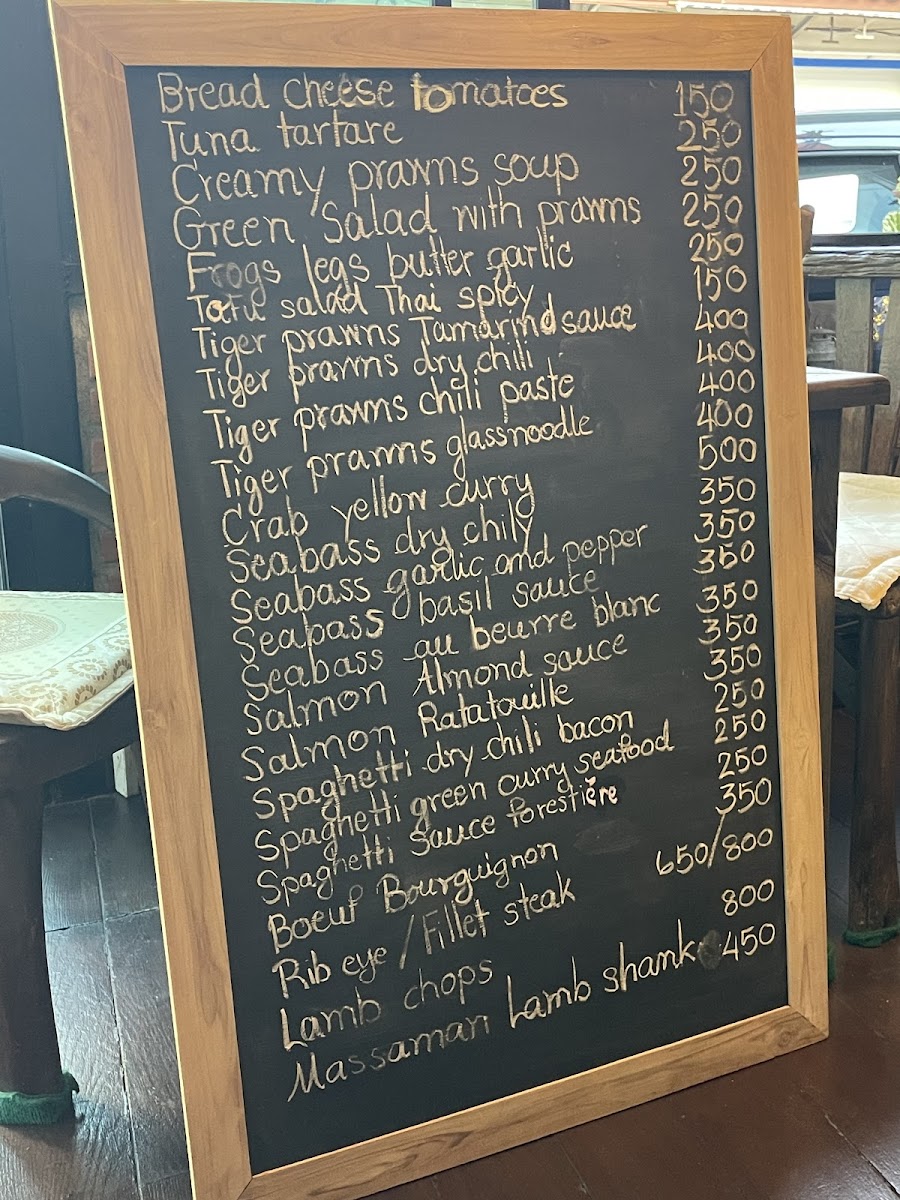 Bread cheese tomatoes 150
Tuna tartare 250
Creamy prawns soup 250
Green Salad with prawns 250
Frogs legs butter garlic 250
Tofu salad Thai spicy 150
Tiger prawns Tamarind sauce 400
Tiger prawns dry chili 400
Tiger prawns chili paste 400
Tiger prawns glassnoodle 400
Crab yellow curry 500
Seabass dry chily 350
Seabass garlic and pepper 350
Seabass basil sauce 350
Seabass au beurre blanc 350
Salmon Almond sauce 350
Salmon Ratatouille 350
Spaghetti dry chili bacon 250
Spaghetti green curry seafood 250
Spaghetti Sauce forestière 250
Boeuf Bourguignon 350
Rib eye / Fillet steak 650/800
Lamb chops 800
Massaman Lamb shank 450